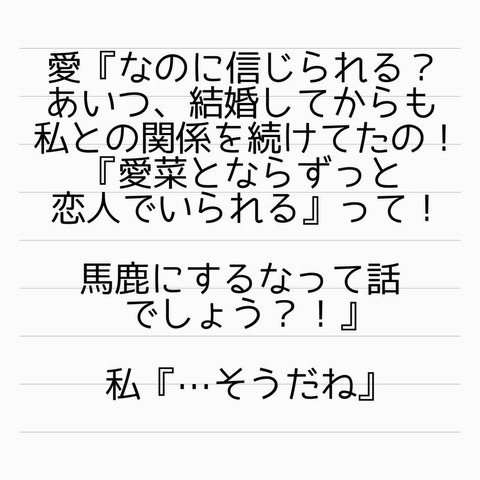 愛『なのに信じられる？
あいつ、結婚してからも
私との関係を続けてたの！
『愛菜とならずっと
恋人でいられる』って！
馬鹿にするなって話
でしょう？！』
私『…そうだね』